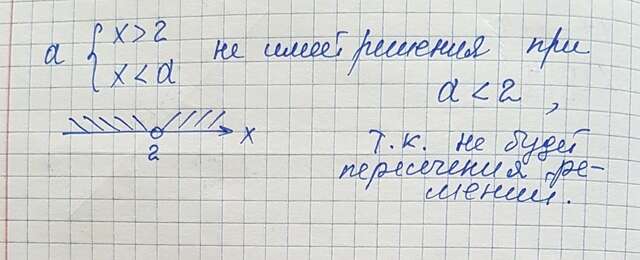 а { x > 2 не имеет решения при
x < а
а < 2 ,
2 x
т.к. не будет
пересечения ре-
шений.